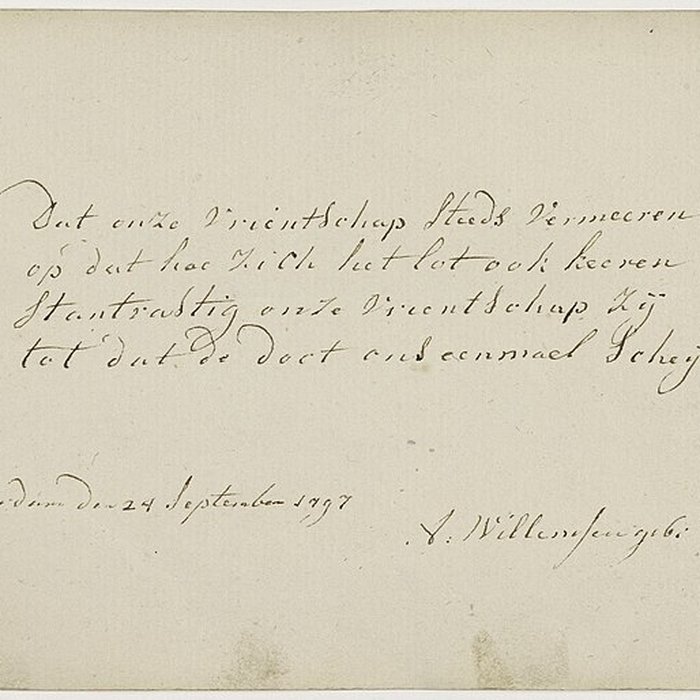 Dat onze Vrientschap Steeds Vermeeren
op dat hoe Zich het lot ook keeren
Stantvastig onze Vrientschap Zij
tot dat De Doot ons eenmael Scheij
dam Den 24 September 1797
A: Willemsen geb: